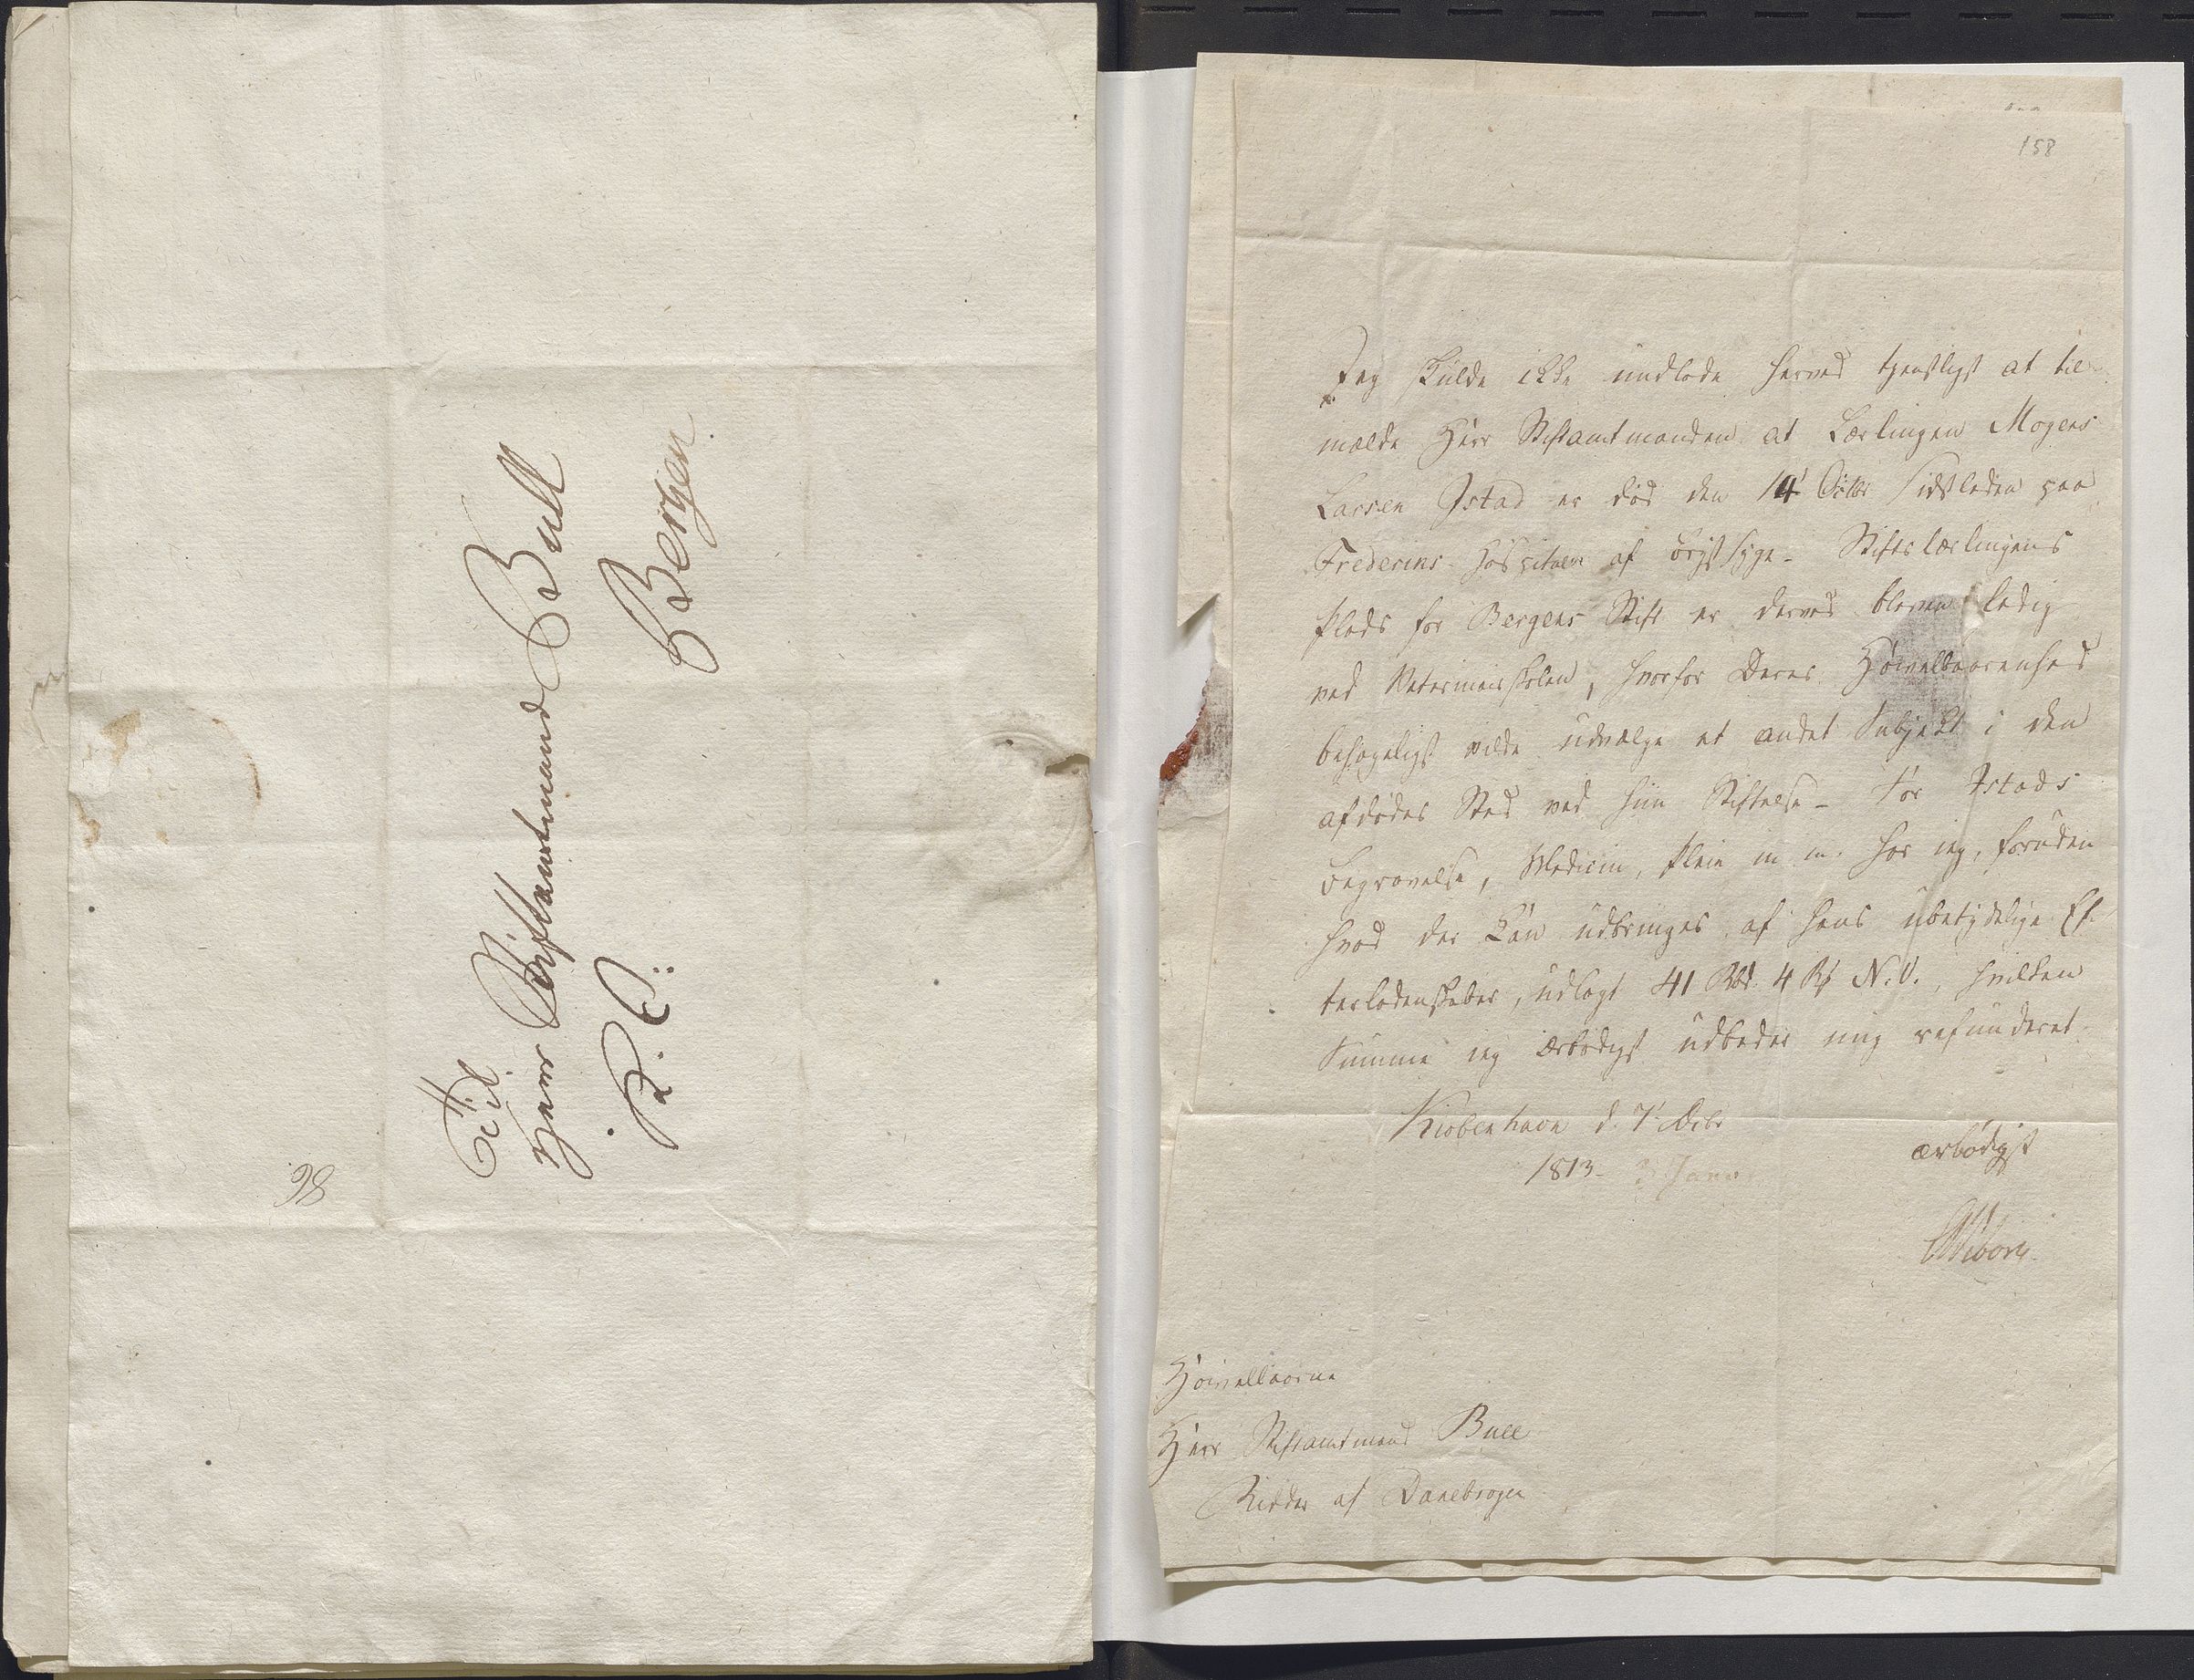 Til
Herr Stiftamtmand Bull
R. D:
Bergen
98
158
Jeg skulde ikke undlade herved tjenstligst at til
melde Herr Stiftamtmanden at Lærlingen Mogens
Larsen Istad er død den 14' Octbr sidstleden paa
Frederiks Hospitalet af Brystsyge - Stiftslærlingens
Plads for Bergens Stift er derved bleven ledig
ved Veterinairskolen, hvorfor Deres Höivelbaarenhed
behageligst vilde udvælge et andet Subjekt i den
afdødes Sted ved hiin Stiftelse - For Istads
Begravelse, Medicin, Pleie m. m. har jeg, foruden
hvad der kan udbringes af hans ubetydelige Ef-
terladenskaber, udlagt 41 Rbd. 4 Rß N.V., hvilken
Summe jeg ærbødigst udbeder mig refunderet.
Kiøbenhavn d. 7' Decbr
1813 - 3 Janv.
ærbødigst
EViborg
Höivelbaarne
Herr Stiftamtmand Bull
Ridder af Danebrogen